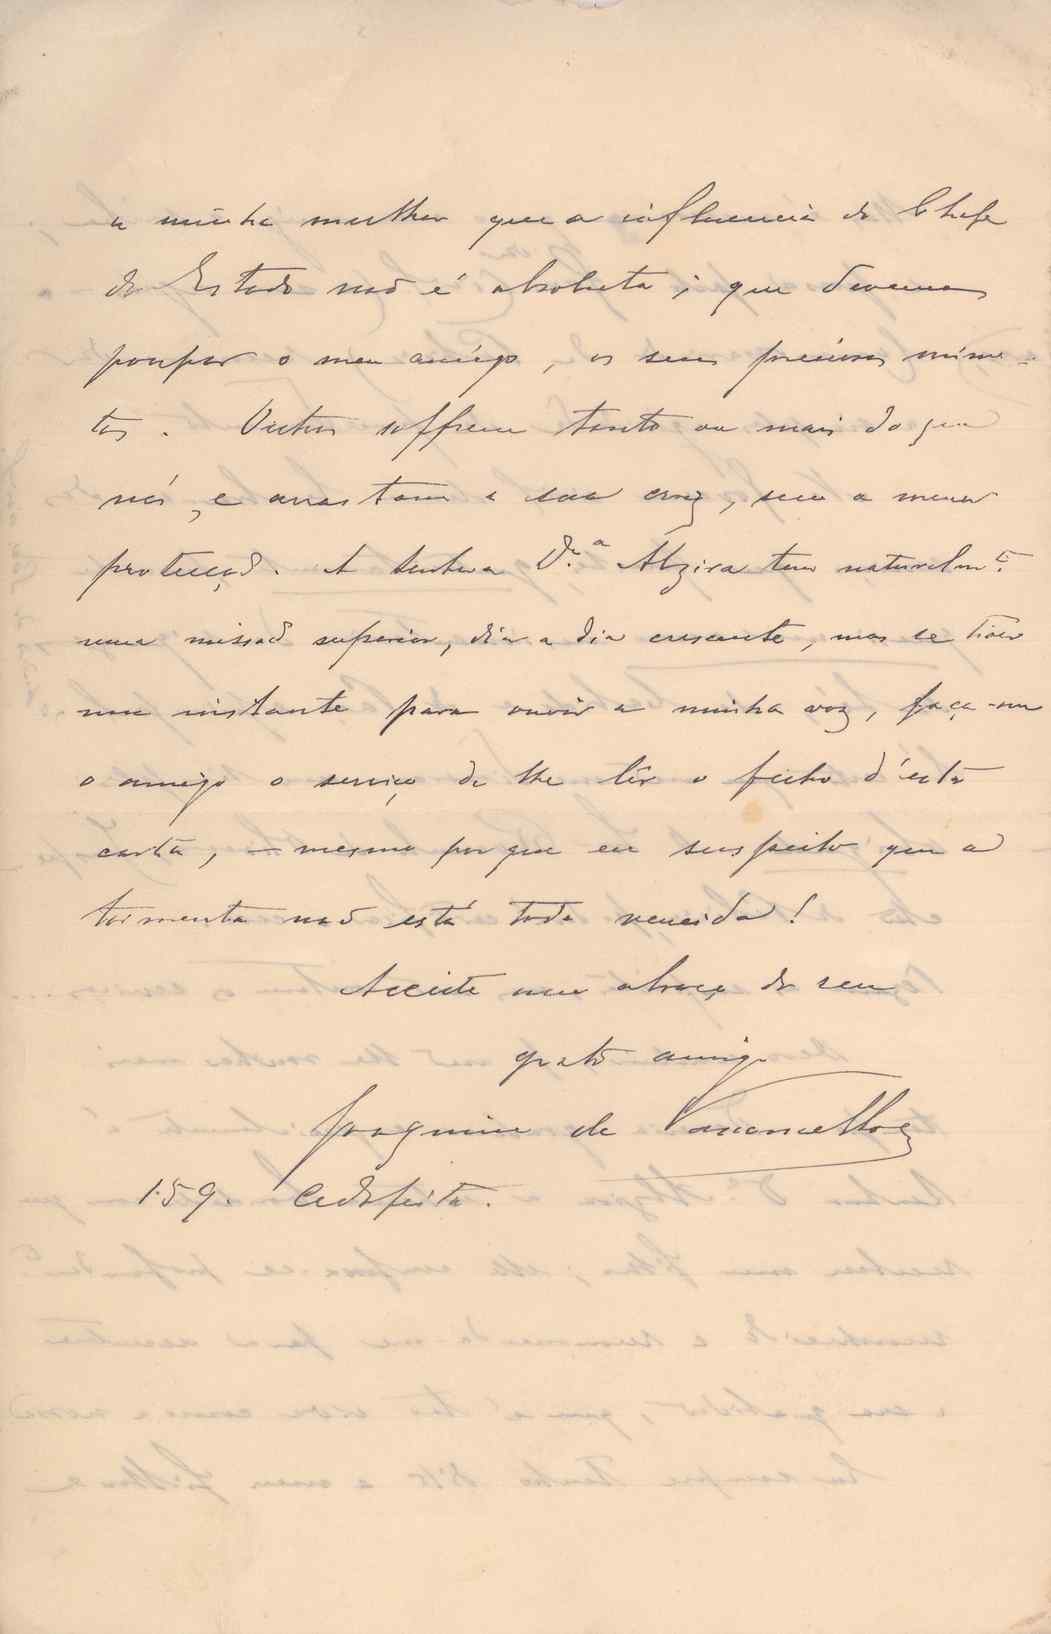 a minha mulher que a influencia do Chefe
do Estado naõ é absoluta; que devemos
poupar o meu amigo, os seus preciosos minu-
tos. Outros soffrem tanto ou mais do que
nós, e arrastam a sua cruz, sem a menor
protecçaõ. A Senhora D.ª Alzira tem naturalm.te
uma missaõ superior, dia a dia crescente, mas se tiver
um instante para ouvir a minha voz, faça-me
o amigo o serviço de lhe lêr o fecho d'esta
carta, — mesmo porque eu suspeito que a
tormenta naõ está toda vencida!
Acceite um abraço do seu
grato amigo
Joaquim de Vasconcellos
159. Cedofeita.